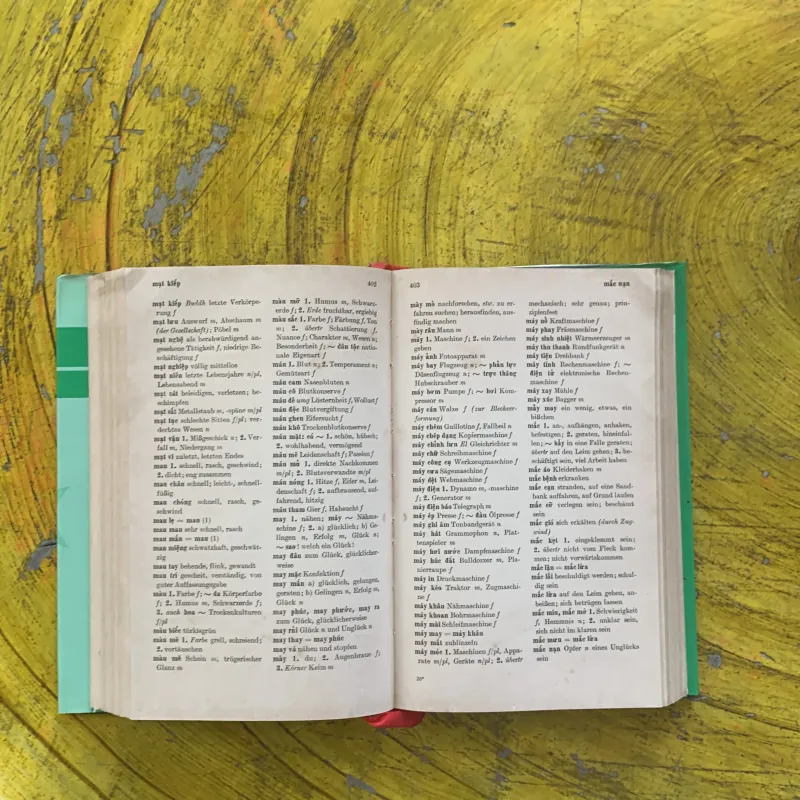 mạt kiếp 402
mạt kiếp Buddh letzte Verkörpe-
rung f
mạt lưu Auswurf m, Abschaum m
(der Gesellschaft); Pöbel m
mạt nghệ als herabwürdigend an-
gesehene Tätigkeit f, niedrige Be-
schäftigung f
mạt nghiệp völlig mittellos
mạt niên letzte Lebensjahre n/pl,
Lebensabend m
mạt sát beleidigen, verletzen; be-
schimpfen
mạt sắt Metallstaub m, -späne m/pl
mạt tục schlechte Sitten f/pl; ver-
derbtes Wesen n
mạt vận 1. Mißgeschick n; 2. Ver-
fall m, Niedergang m
mạt vĩ zuletzt, letzten Endes
mau 1. schnell, rasch, geschwind;
2. dicht; eng zusammen
mau chân schnell; leicht-, schnell-
füßig
mau chóng schnell, rasch, ge-
schwind
mau lẹ = mau (1)
mau mau sehr schnell, rasch
mau mắn = mau (1)
mau miệng schwatzhaft, geschwät-
zig
mau tay behende, flink, gewandt
mau trí gescheit, verständig, von
guter Auffassungsgabe
màu 1. Farbe f; ~ da Körperfarbe
f; 2. Humus m, Schwarzerde f;
3. auch hoa ~ Trockenkulturen
f/pl
màu biếc türkisgrün
màu mè 1. Farbe grell, schreiend;
2. vortäuschen
màu mẽ Schein m, trügerischer
Glanz m
màu mỡ 1. Humus m, Schwarz-
erde f; 2. Erde fruchtbar, ergiebig
màu sắc 1. Farbe f; Färbung f, Ton
m; 2. übertr Schattierung f,
Nuance f; Charakter m, Wesen n;
Besonderheit f; ~ dân tộc natio-
nale Eigenart f
máu 1. Blut n; 2. Temperament n;
Gemütsart f
máu cam Nasenbluten n
máu cô Blutkonserve f
máu dê umg Lüsternheit f, Wollust f
máu độc Blutvergiftung f
máu ghen Eifersucht f
máu khô Trockenblutkonserve f
máu mặt: có ~ 1. schön, hübsch;
2. wohlhabend, vermögend
máu mê Leidenschaft f; Passion f
máu mủ 1. direkte Nachkommen
m/pl; 2. Blutsverwandte m/pl
máu nóng 1. Hitze f, Eifer m, Lei-
denschaft f; 2. aufbrausend, auf-
fahrend, hitzig
máu tham Gier f, Habsucht f
may 1. nähen; máy ~ Nähma-
schine f; 2. a) glücklich; b) Ge-
lingen n, Erfolg m, Glück n;
~ sao! welch ein Glück!
may đâu zum Glück, glücklicher-
weise
may mặc Konfektion f
may mắn a) glücklich, gelungen,
geraten; b) Gelingen n, Erfolg m,
Glück n
may phúc, may phước, may ra
zum Glück, glücklicherweise
may rủi Glück n und Unglück n
may thay = may phúc
may vá nähen und stopfen
mày 1. du; 2. Augenbraue f;
3. Körner Keim m
403 mắc nạn
máy mò nachforschen, etw. zu er-
fahren suchen; herausfinden, aus-
findig machen
mày râu Mann m
máy 1. Maschine f; 2. ein Zeichen
geben
máy ảnh Fotoapparat m
máy bay Flugzeug n; ~ phản lực
Düsenflugzeug n; ~ trực thăng
Hubschrauber m
máy bơm Pumpe f; ~ hơi Kom-
pressor m
máy cán Walze f (zur Blechver-
formung)
máy chém Guillotine f, Fallbeil n
máy chép dạng Kopiermaschine f
máy chỉnh lưu El Gleichrichter m
máy chữ Schreibmaschine f
máy công cụ Werkzeugmaschine f
máy cưa Sägemaschine f
máy dệt Webmaschine f
máy điện 1. Dynamo m, -maschine
f; 2. Generator m
máy điện báo Telegraph m
máy ép Presse f; ~ dầu Ölpresse f
máy ghi âm Tonbandgerät n
máy hát Grammophon n, Plat-
tenspieler m
máy hơi nước Dampfmaschine f
máy húc đất Bulldozer m, Pla-
nierraupe f
máy in Druckmaschine f
máy kéo Traktor m, Zugmaschi-
ne f
máy khâu Nähmaschine f
máy khoan Bohrmaschine f
máy mài Schleifmaschine f
máy may = máy khâu
máy mắt zublinzeln
máy móc 1. Maschinen f/pl, Appa-
rate m/pl, Geräte n/pl; 2. übertr
mechanisch; sehr genau; prin-
zipienfest
máy nổ Kraftmaschine f
máy phay Fräsmaschine f
máy sinh nhiệt Wärmeerzeuger m
máy thu thanh Rundfunkgerät n
máy tiện Drehbank f
máy tính Rechenmaschine f; ~
điện tử elektronische Rechen-
maschine f
máy xay Mühle f
máy xúc Bagger m
mảy may ein wenig, etwas, ein
bißchen
mắc 1. an-, aufhängen, anhaken,
befestigen; 2. geraten, hineinfal-
len; ~ bẫy in eine Falle geraten;
übertr auf den Leim gehen; 3. be-
schäftigt sein, viel Arbeit haben
mắc áo Kleiderhaken m
mắc bệnh erkranken
mắc cạn stranden, auf eine Sand-
bank auffahren, auf Grund laufen
mắc cỡ verlegen sein; beschämt
sein
mắc gió sich erkälten (durch Zug-
wind)
mắc kẹt 1. eingeklemmt sein;
2. übertr nicht vom Fleck kom-
men, nicht vorwärtskommen
mắc lận = mắc lừa
mắc lỗi beschuldigt werden; schul-
dig sein
mắc lừa auf den Leim gehen, an-
beißen; sich betrügen lassen
mắc míu, mắc mớ 1. Schwierigkeit
f, Hemmnis n; 2. unklar sein,
sich nicht im klaren sein
mắc mưu = mắc lừa
mắc nạn Opfer n eines Unglücks
sein
26*